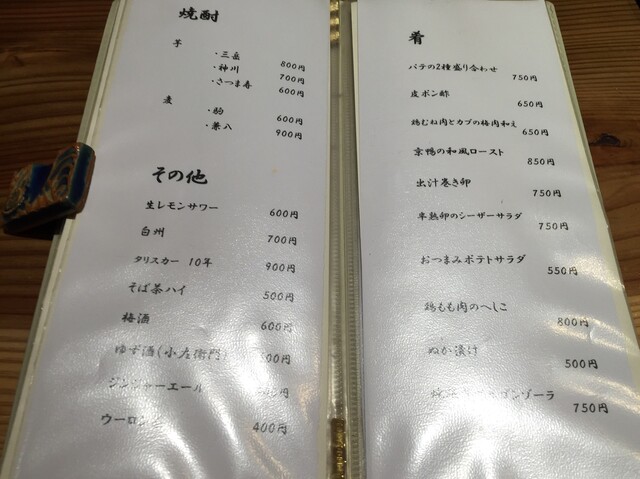 焼酎
芋
・三岳 800円
・神川 700円
・さつま寿 600円
麦
・駒 600円
・兼八 900円
その他
生レモンサワー 600円
白州 700円
タリスカー 10年 900円
そば茶ハイ 500円
梅酒 600円
ゆず酒(小左衛門) 00円
ジンジャーエール 円
ウーロン 400円
肴
パテの2種盛り合わせ 750円
皮ポン酢 650円
鶏むね肉とカブの梅肉和え 650円
京鴨の和風ロースト 850円
出汁巻き卵 750円
半熟卵のシーザーサラダ 750円
おつまみポテトサラダ 550円
鶏もも肉のへしこ 800円
ぬか漬け 500円
ゴンゾーラ 750円